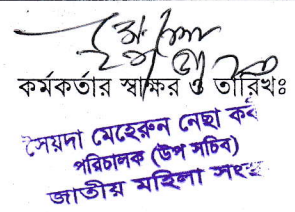 কর্মকর্তার স্বাক্ষর ও তারিখঃ
সৈয়দা মেহেরুন নেছা কবী
পরিচালক (উপ সচিব)
জাতীয় মহিলা সংস্থা